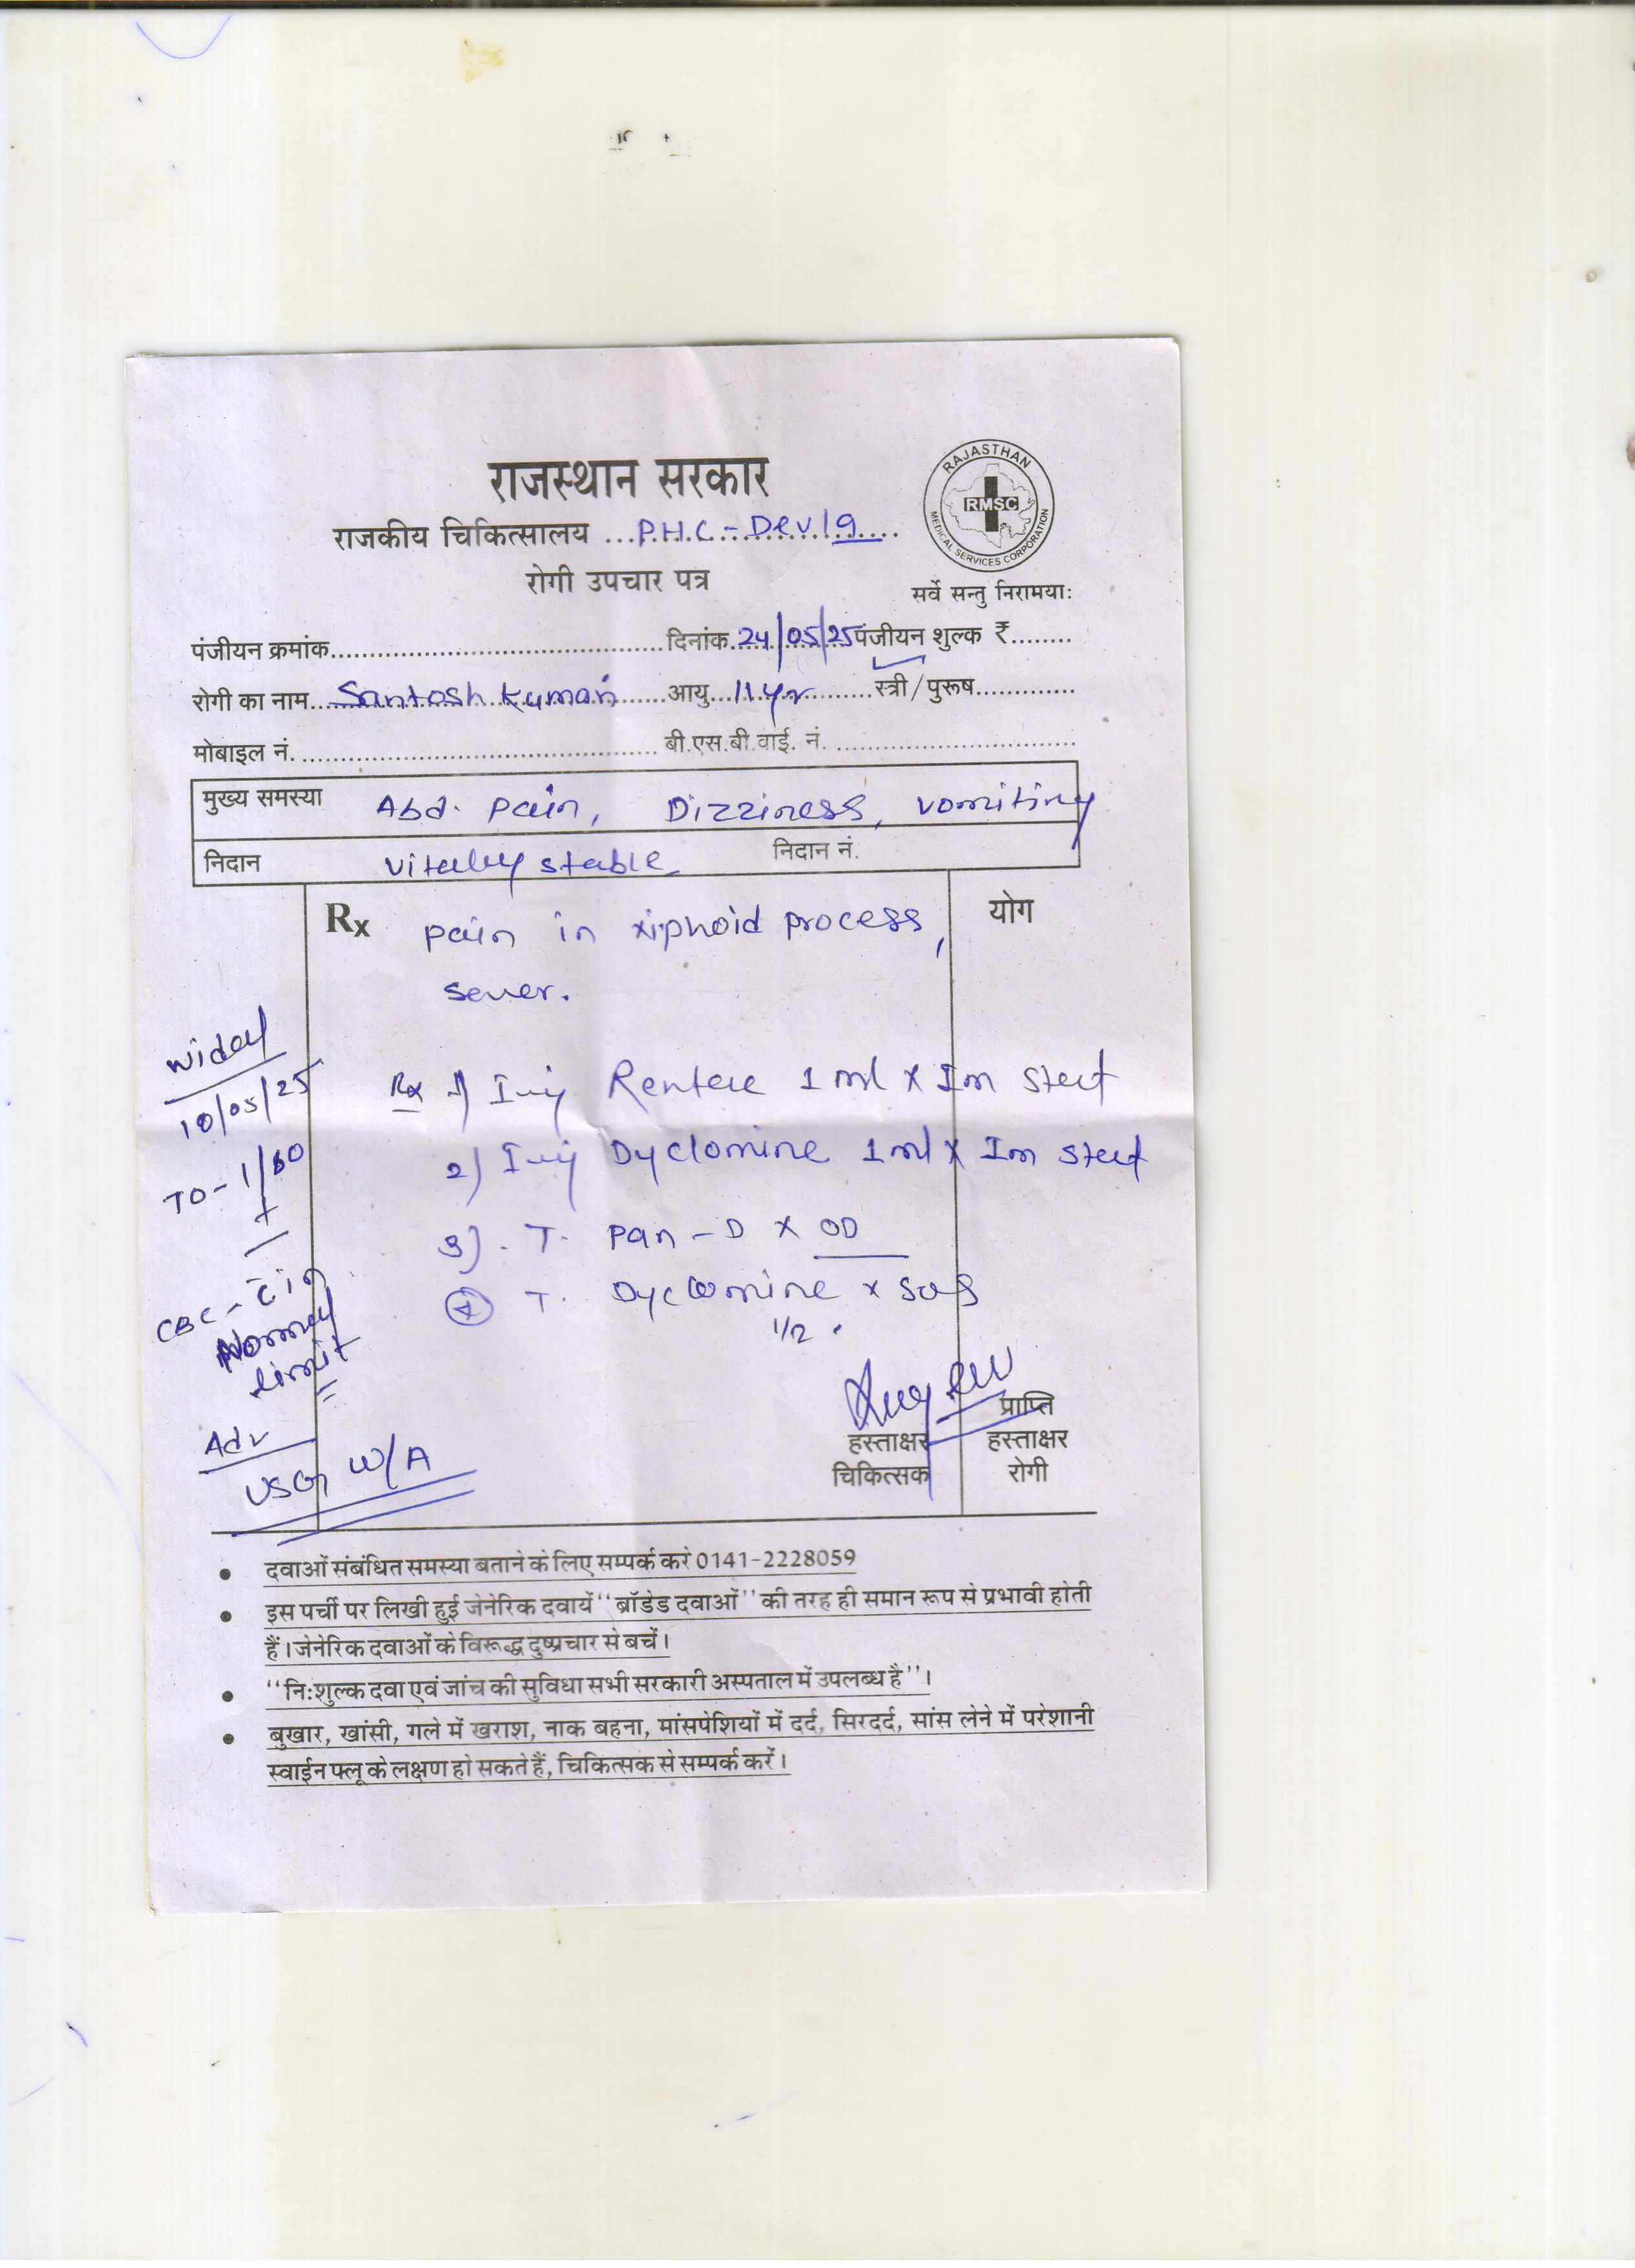 राजस्थान सरकार
राजकीय चिकित्सालय ...P.H.C.-Devla....
रोगी उपचार पत्र
RAJASTHAN
RMSC
MEDICAL SERVICES CORPORATION
सर्वे सन्तु निरामयाः
पंजीयन क्रमांक.......... दिनांक 24/05/25 पंजीयन शुल्क ₹........
रोगी का नाम... Santosh Kumari ...... आयु.. 11 yr ........ स्त्री/पुरूष.............
मोबाइल नं. .......... बी.एस.बी.वाई. नं. ..........
मुख्य समस्या Abd. pain, Dizziness, vomiting
निदान vitally stable निदान नं.
Rx pain in xiphoid process, योग
sever.
Widal
10/05/25
TO - 1/60
+
CBC - c̄ in
Normal
limit
Adv
USG W/A
Rx 1) Inj Rentece 1 ml x Im Stat
2) Inj Dyclomine 1 ml x Im Stat
3). T. Pan-D x OD
4 T. Dyclomine x SOS
1/2
हस्ताक्षर
चिकित्सक
प्राप्ति
हस्ताक्षर
रोगी
• दवाओं संबंधित समस्या बताने के लिए सम्पर्क करे 0141-2228059
• इस पर्ची पर लिखी हुई जेनेरिक दवायें ‘‘ब्रॉडेड दवाओं’’ की तरह ही समान रूप से प्रभावी होती
हैं। जेनेरिक दवाओं के विरूद्ध दुष्प्रचार से बचें।
• ‘‘निःशुल्क दवा एवं जांच की सुविधा सभी सरकारी अस्पताल में उपलब्ध है’’।
• बुखार, खांसी, गले में खराश, नाक बहना, मांसपेशियों में दर्द, सिरदर्द, सांस लेने में परेशानी
स्वाईन फ्लू के लक्षण हो सकते हैं, चिकित्सक से सम्पर्क करें।